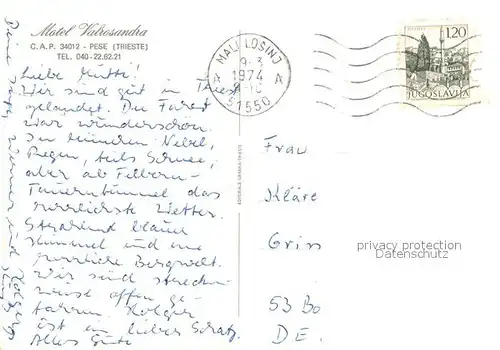 Motel Valrosandra
C.A.P. 34012 - PESE (TRIESTE)
TEL. 040-22.62.21
Liebe Mutti!
Wir sind gut in Triest
gelandet. Die Fahrt
war wunderschön.
In München Nebel,
Regen, teils Schnee,
aber ab Felbern-
Tauerntunnel das
herrlichste Wetter.
Strahlend blauer
Himmel und eine
herrliche Bergwelt.
Wir sind strecken-
weise offen ge-
fahren. Holger
ist ein lieber Schatz.
Alles Gute
Deine
Werner und Holger
MALI LOŠINJ
1974
51550
1,20
JUGOSLAVIJA
Frau
Kläre
53 Bo
D.E.
privacy protection
Datenschutz